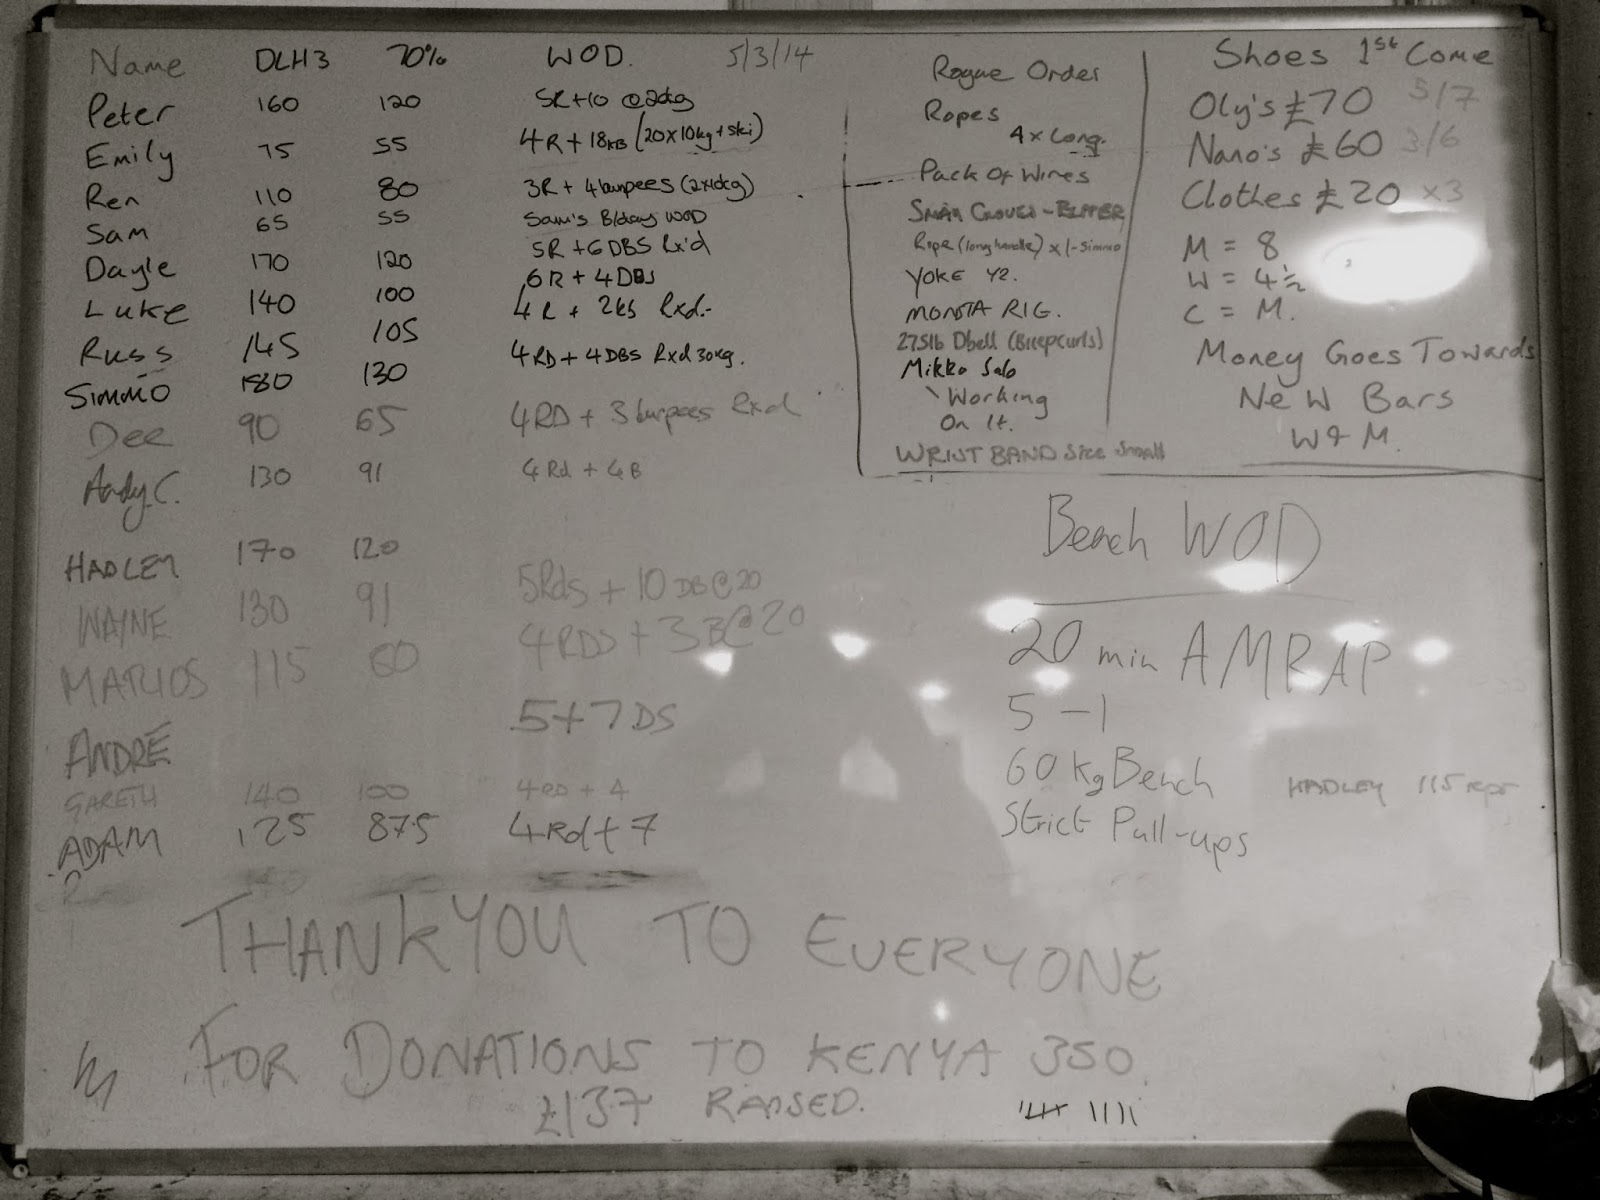 Name DLH3 70% WOD. 5/3/14
Peter 160 120 5R+10 @20kg
Emily 75 55 4R+18KB (20x10kg+ski)
Ren 110 80 3R + 4 burpees (2x10kg)
Sam 65 55 Sam's Bday WOD
Dayle 170 120 5R+6DBS Rx'd
Luke 140 100 6R + 4DBS
Russ 145 105 4R + 2ks Rxd.
Simmo 180 130 4RD + 4DBS Rxd 30kg.
Dee 90 65 4RD + 3 burpees Rxd
Andy C. 130 91 4Rd + 4B
HADLEY 170 120
WAYNE 130 91 5Rds + 10DB@20
MARIOS 115 80 4RDS + 3B@20
ANDRE 5+7DS
GARETH 140 100 4RD + 4
ADAM 125 87.5 4Rd+7
Rogue Order
Ropes
4 x Long.
Pack Of Wires
Rope (long handle) x 1 - Simmo
YOKE Y2.
MONSTA RIG.
275lb Dbell (Bicepcurls)
Mikko Salo
\ Working
On It.
WRIST BAND Size Small
Shoes 1st Come
Oly's £70 5/7
Nano's £60 3/6
Clothes £20 x3
M = 8
W = 4½
C = M.
Money Goes Towards
New Bars
W & M.
Bench WOD
20 min AMRAP
5-1
60kg Bench
HADLEY 115 reps
Strict Pull-ups
THANKYOU TO EVERYONE
FOR DONATIONS TO KENYA 350
£137 RAISED.